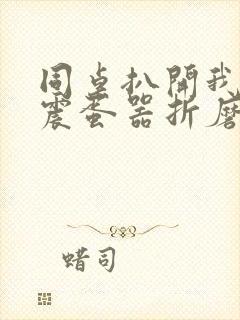 同桌扒開我
震蛋器折磨
蜡司